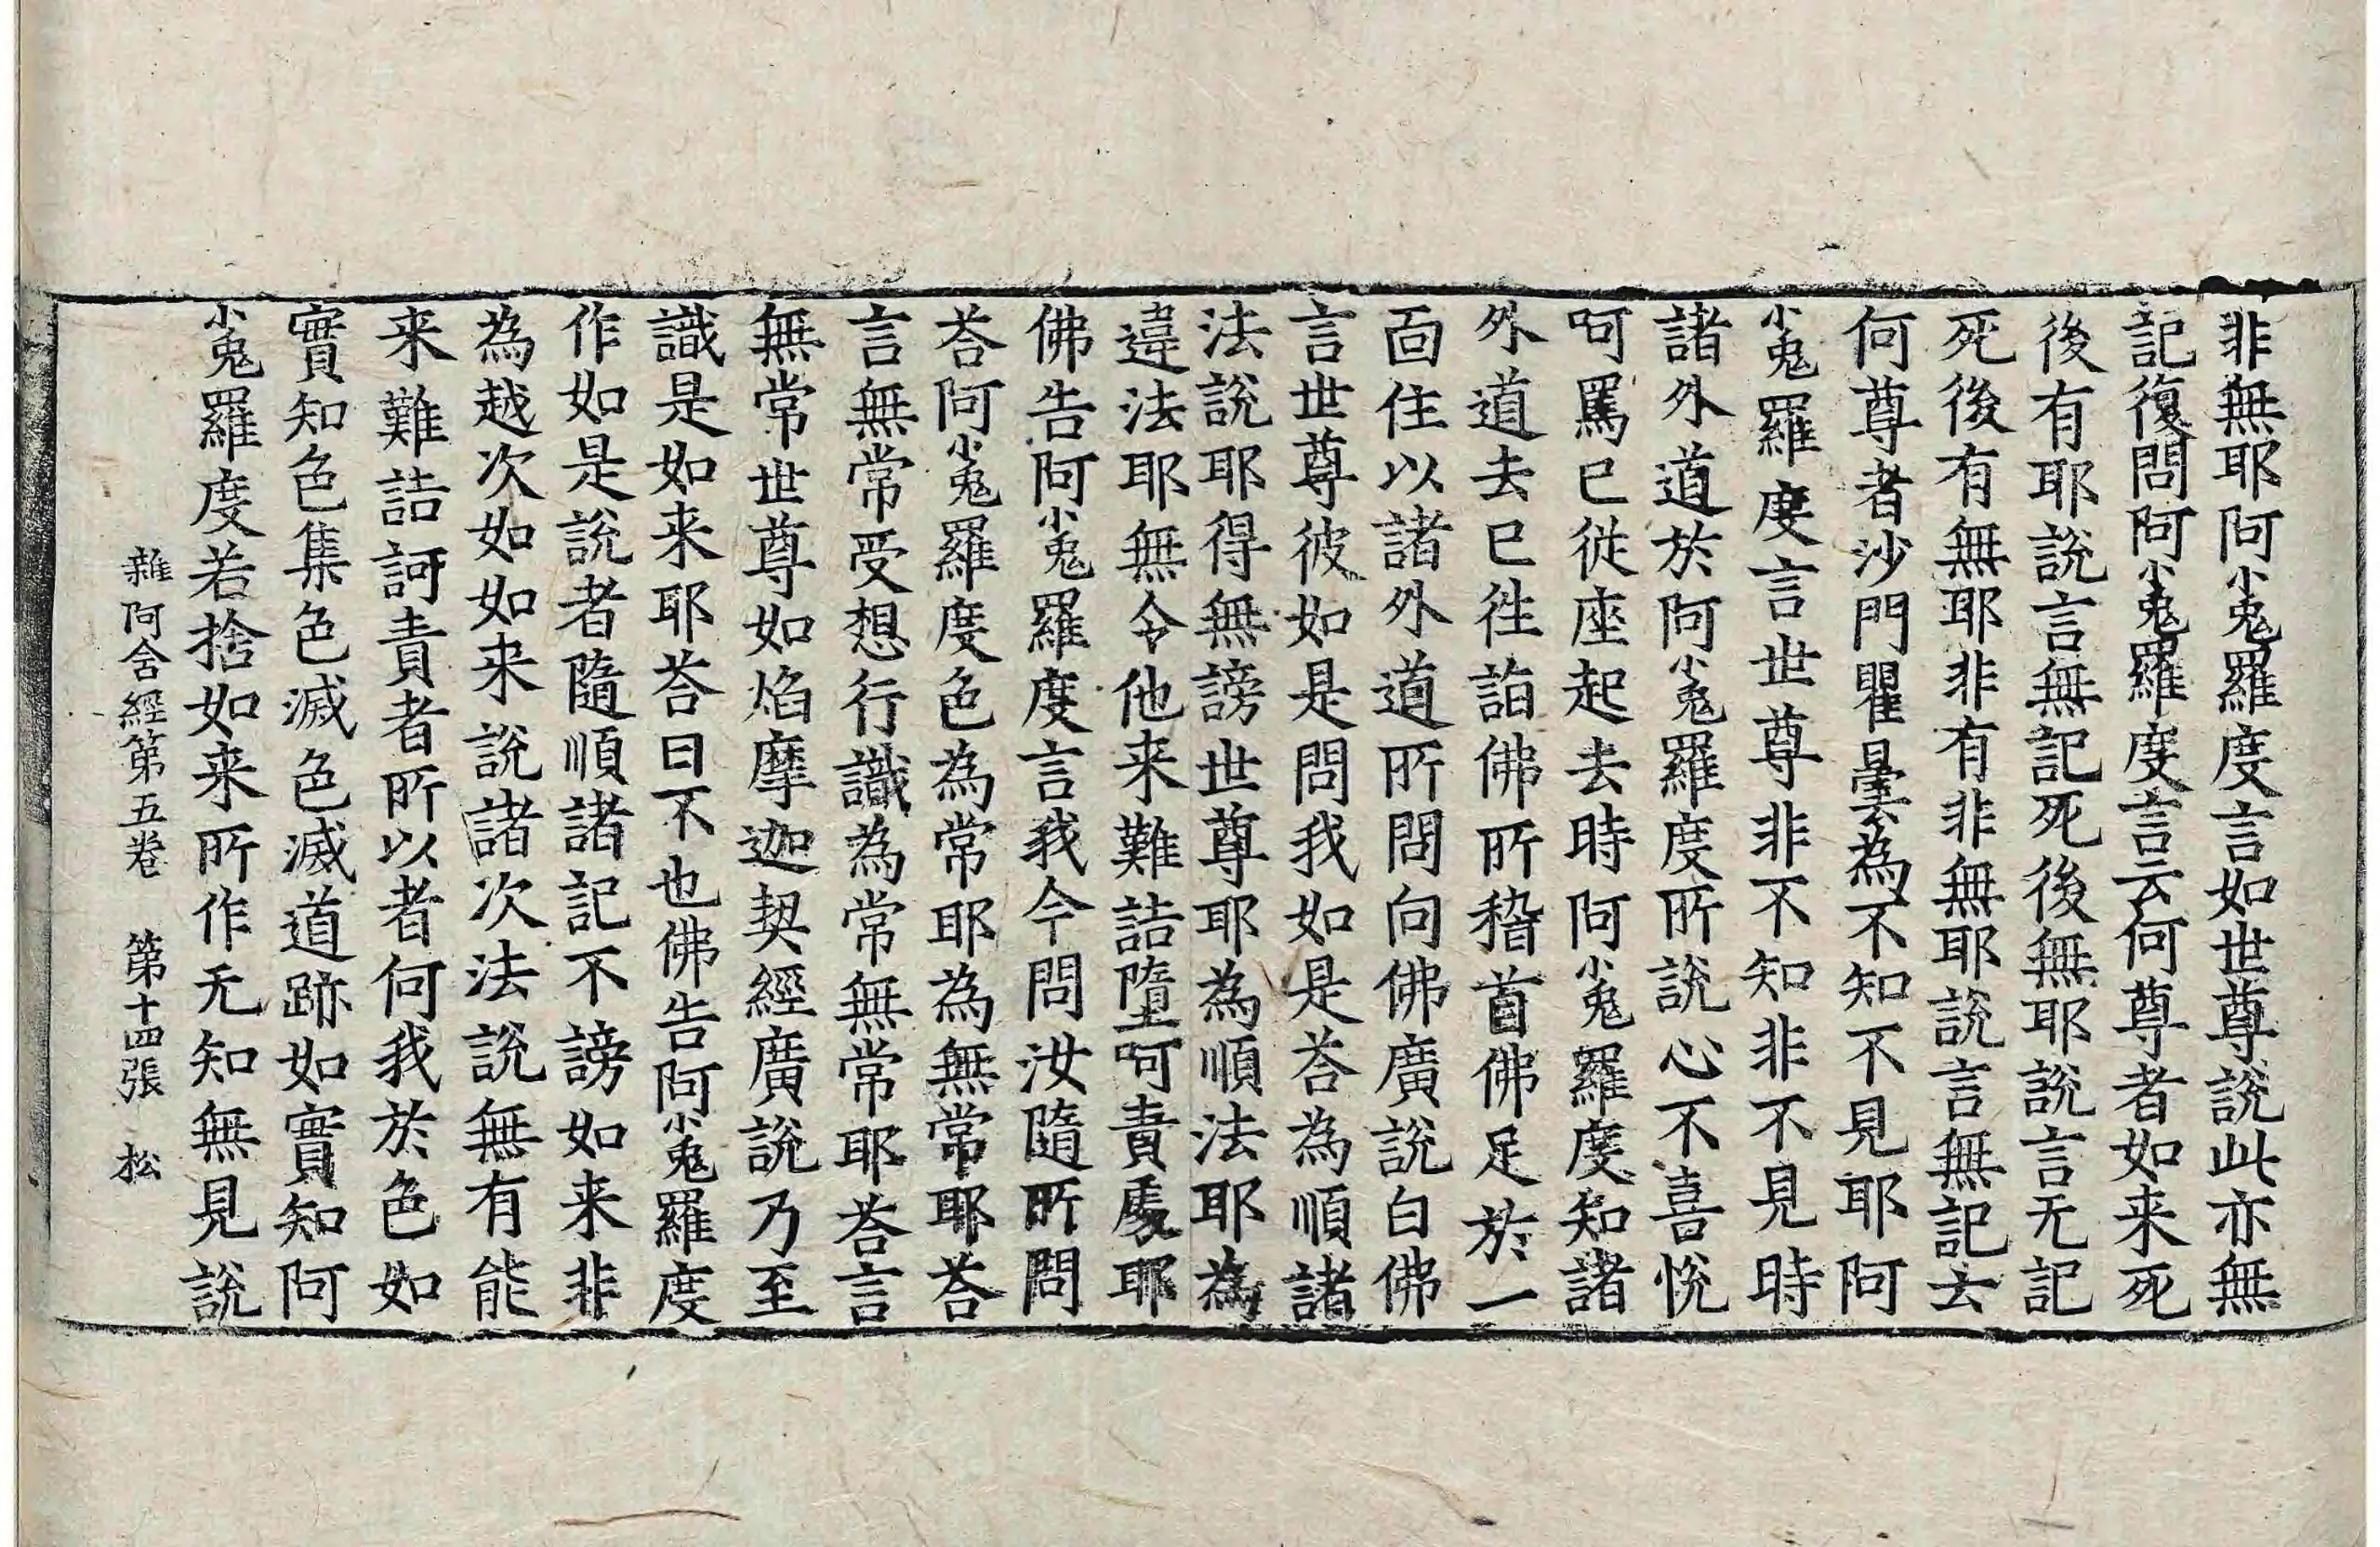 非無耶阿㝹羅度言如世尊說此亦無
記復問阿㝹羅度言云何尊者如来死
後有耶說言無記死後無耶說言无記
死後有無耶非有非無耶說言無記去
何尊者沙門瞿曇為不知不見耶阿
㝹羅度言世尊非不知非不見時
諸外道於阿㝹羅度所說心不喜恱
呵罵已從座起去時阿㝹羅度知諸
外道去已徃詣佛所稽首佛足於一
面住以諸外道所問向佛廣說白佛
言世尊彼如是問我如是荅為順諸
法說耶得無謗世尊耶為順法耶為
違法耶無令他来難詰墮呵責處耶
佛告阿㝹羅度言我今問汝隨所問
荅阿㝹羅度色為常耶為無常耶荅
言無常受想行識為常無常耶荅言
無常世尊如焰摩迦契經廣說乃至
識是如来耶荅曰不也佛告阿㝹羅度
作如是說者隨順諸記不謗如来非
為越次如如来說諸次法說無有能
来難詰訶責者所以者何我於色如
實知色集色滅色滅道跡如實知阿
㝹羅度若捨如来所作无知無見說
雜阿含經第五卷 第十四張 松